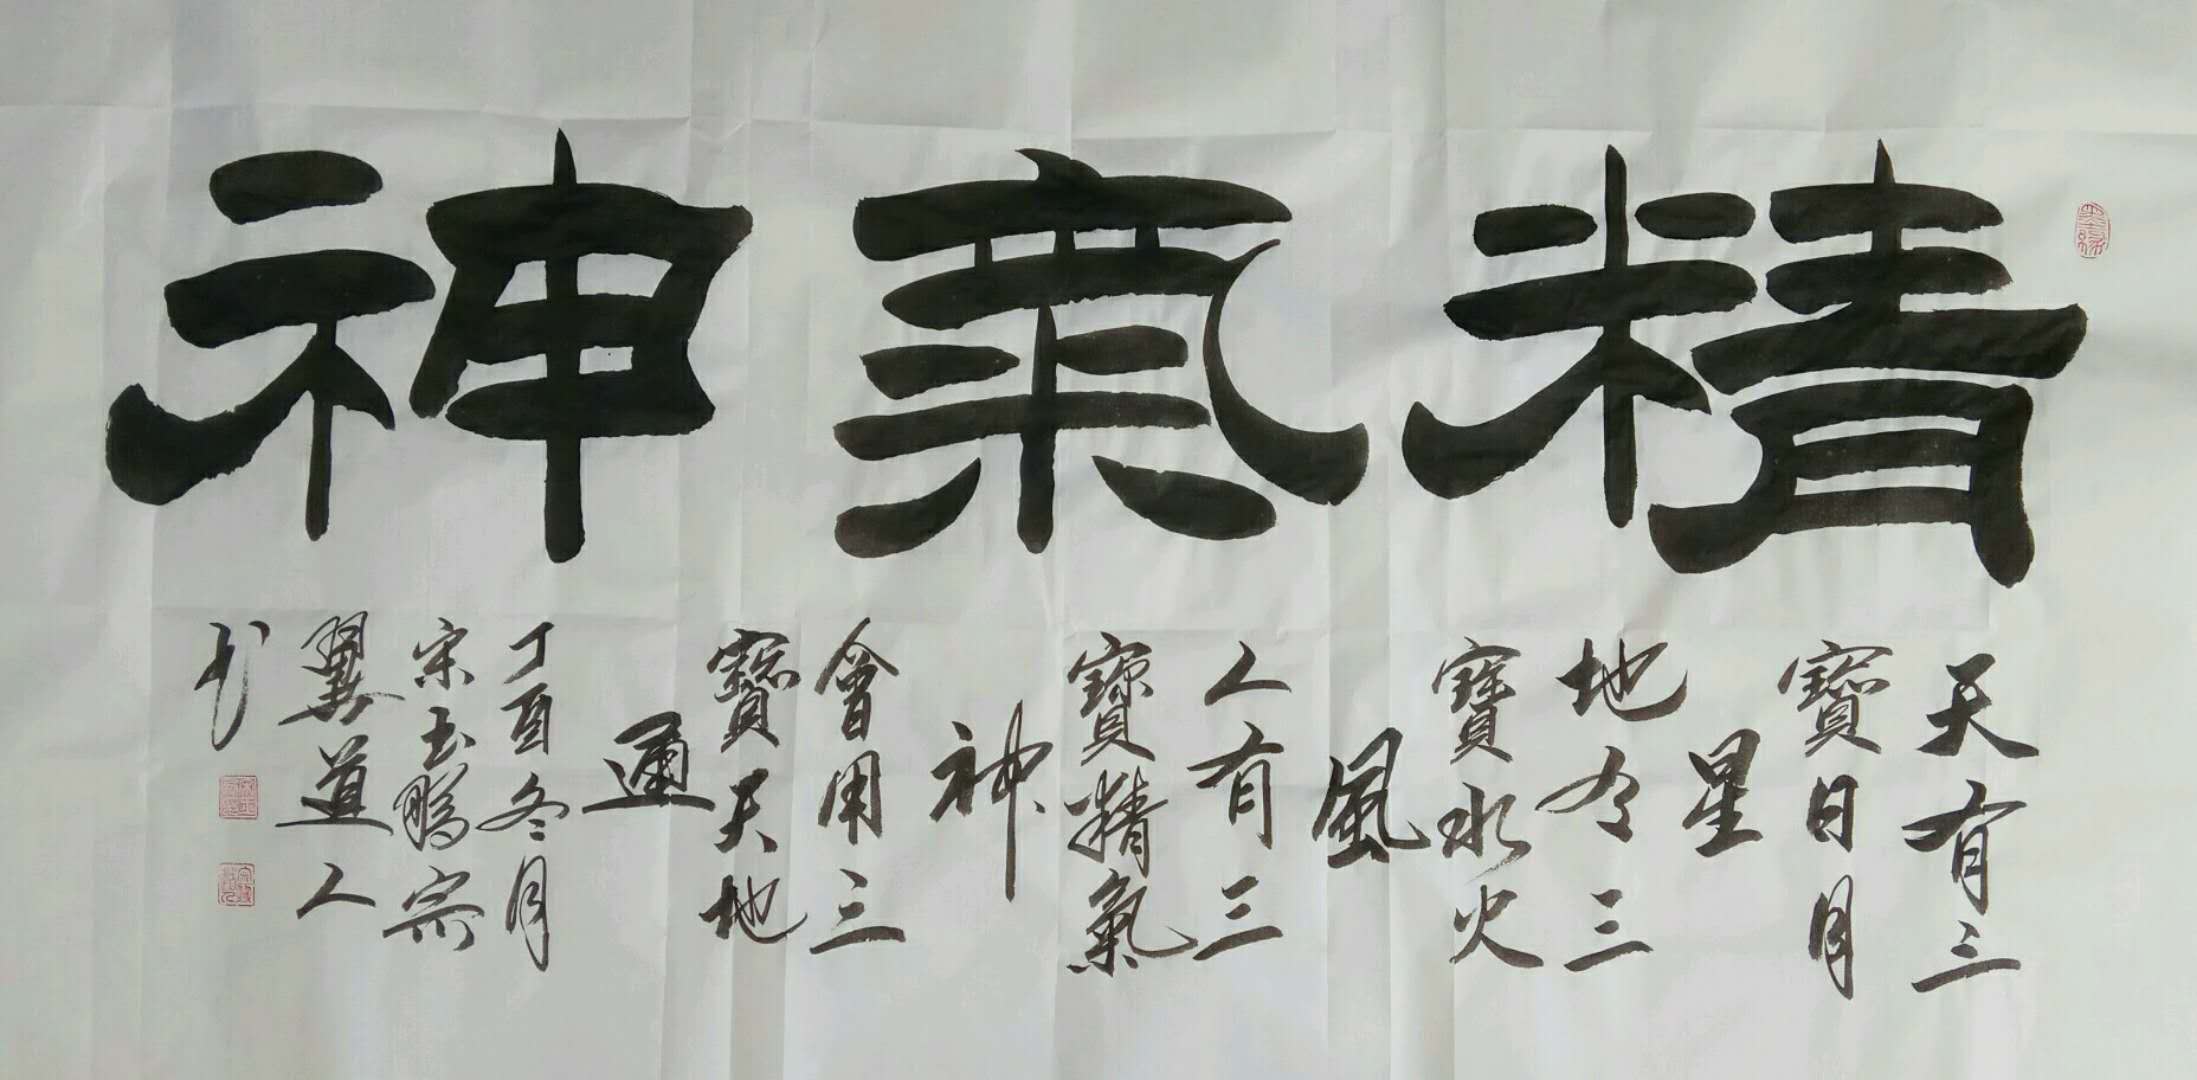 精氣神
天有三
寶日月
星
地有三
寶水火
風
人有三
寶精氣
神
會用三
寶天地
通
丁酉冬月
宋玉鵬齋
翼道人
书